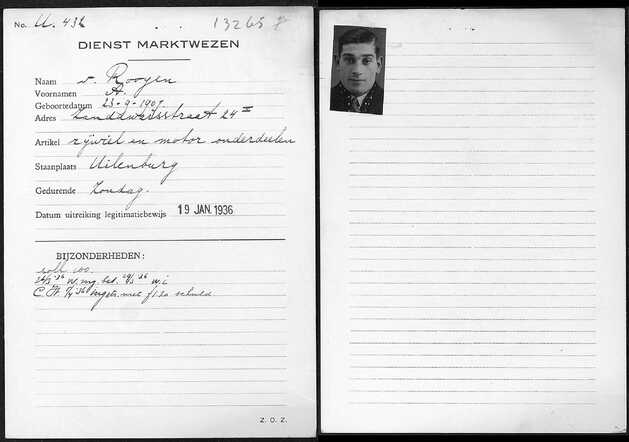 No. U. 436 13265
DIENST MARKTWEZEN
Naam v. Rooyen
Voornamen A.
Geboortedatum 23-9-1907.
Adres 24 II
Artikel rijwiel en motor onderdeelen
Staanplaats Uilenburg
Gedurende Zondag.
Datum uitreiking legitimatiebewijs 19 JAN. 1936
BIJZONDERHEDEN:
soll. 100.
W.
C.W. met schuld
Z. O. Z.